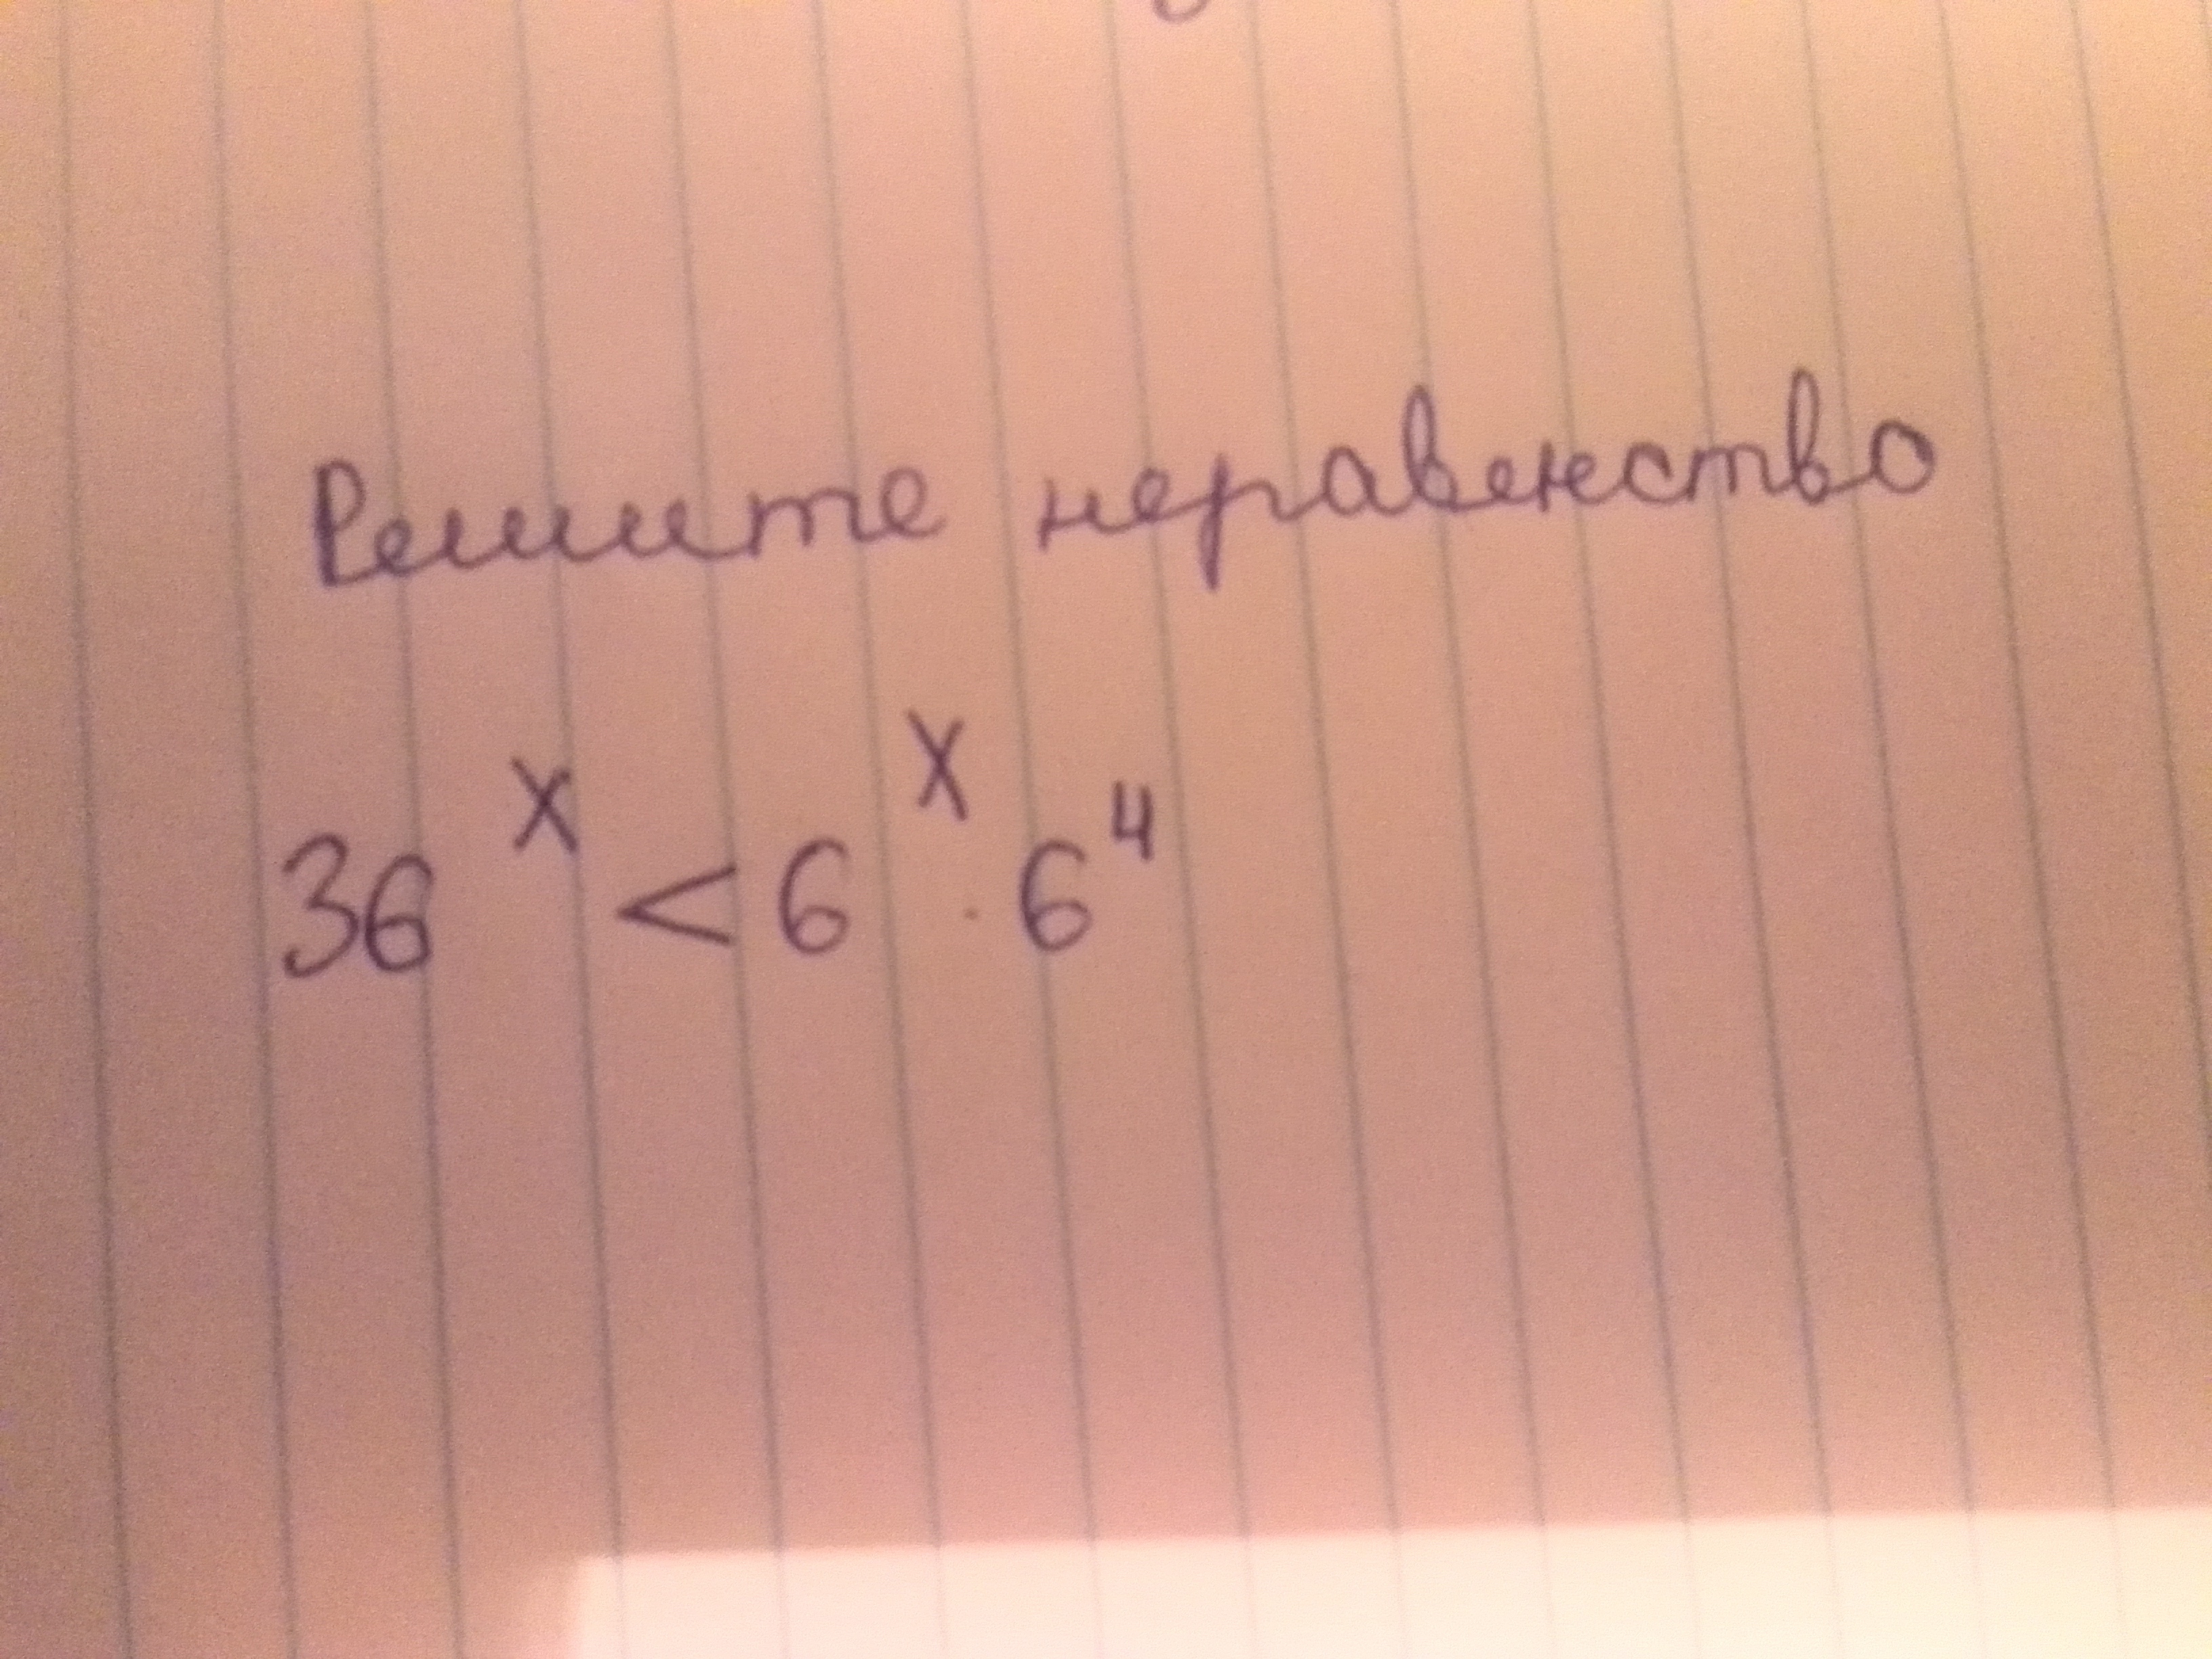 Решите неравенство
36ˣ < 6ˣ · 6⁴